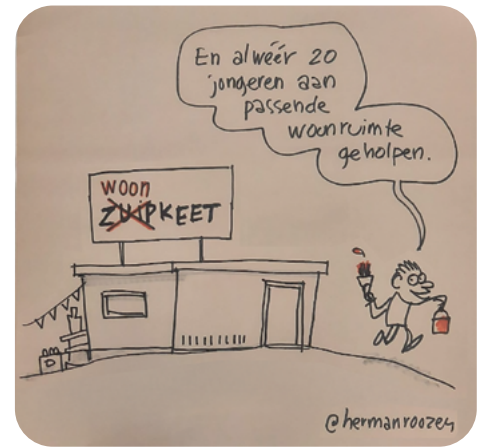 En alwéér 20
jongeren aan
passende
woonruimte
geholpen.
woon
ZUIPKEET
@hermanroozen